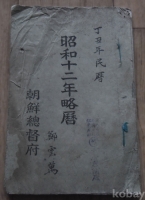 丁丑年民曆
昭和十二年略曆
朝鮮總督府
kobay